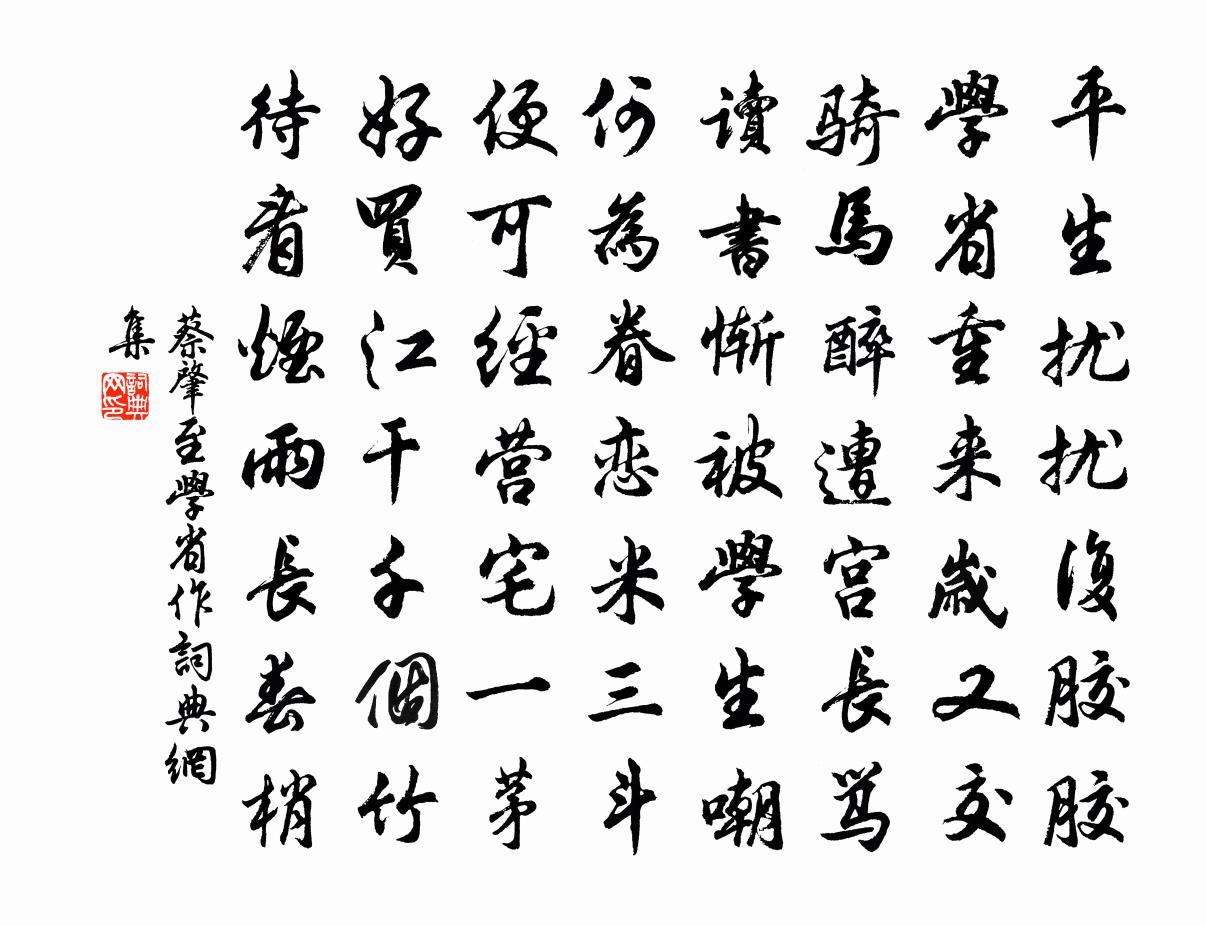 平生扰扰復胶胶
學省重来歲又交
骑馬醉遭宫長骂
讀書惭被學生嘲
何為眷恋米三斗
便可經营宅一茅
好買江干千個竹
待看煙雨長春梢
蔡肇至學省作詞典網
集
詞典网印